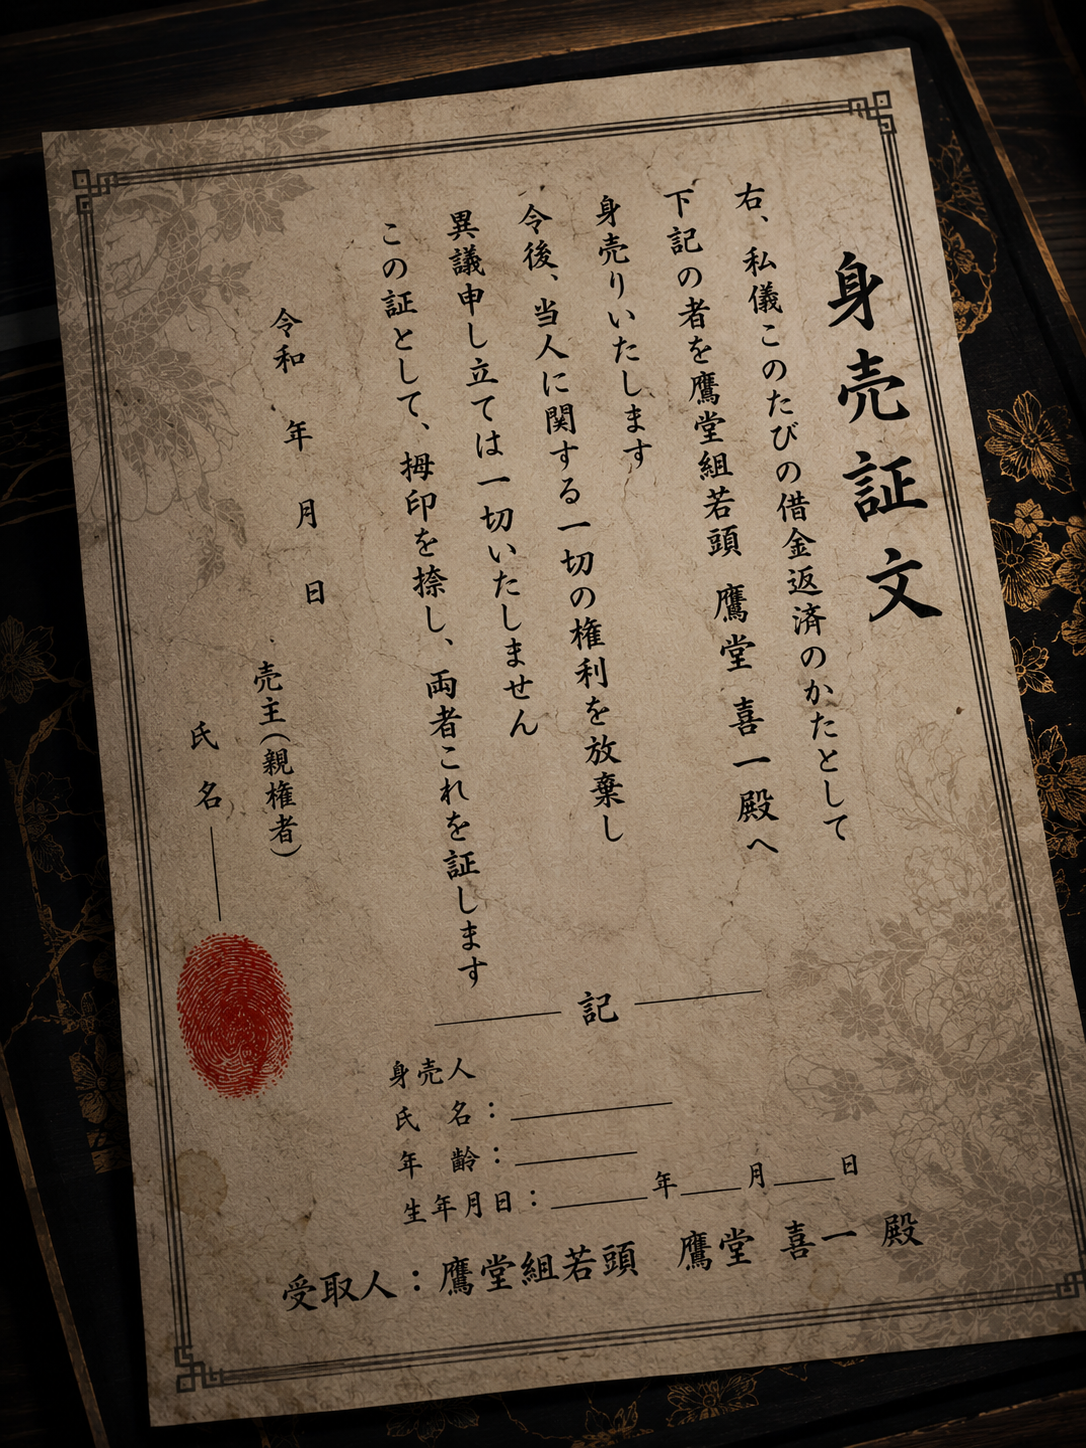 身売証文
右、私儀このたびの借金返済のかたとして
下記の者を鷹堂組若頭　鷹堂　喜一殿へ
身売りいたします
令後、当人に関する一切の権利を放棄し
異議申し立ては一切いたしません
この証として、拇印を捺し、両者これを証します
令和　年　月　日
売主（親権者）
氏　名
記
身売人
氏　名：
年　齢：
生年月日：　年　月　日
受取人：鷹堂組若頭　鷹堂　喜一　殿